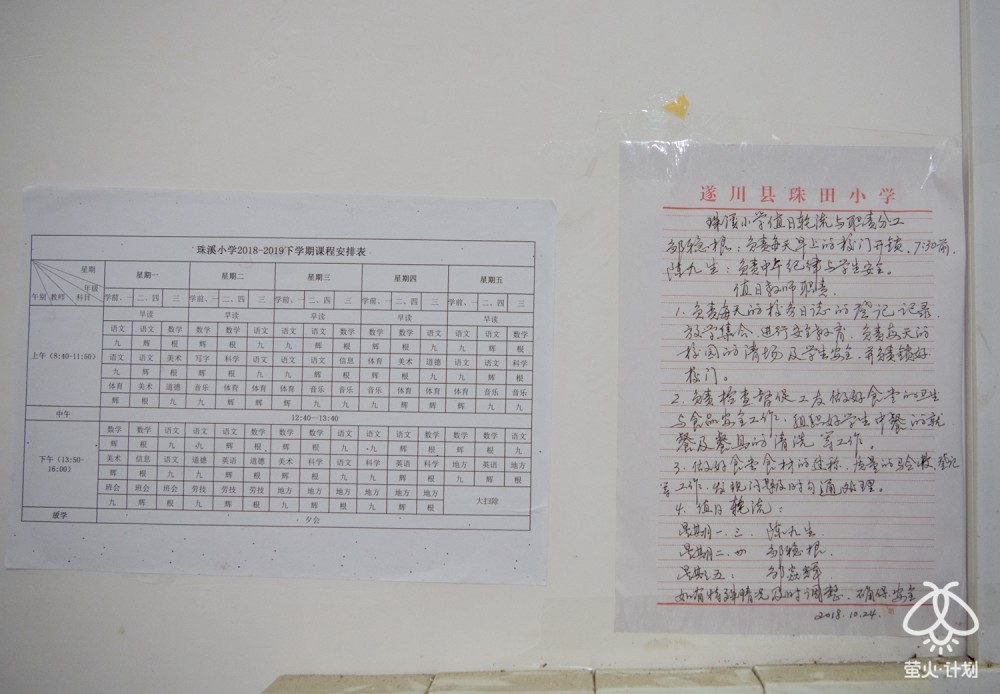 珠溪小学2018-2019下学期课程安排表
星期 年级 科目 教师 午别 星期一 星期二 星期三 星期四 星期五
学前、一 二、四 三 学前、一 二、四 三 学前、一 二、四 三 学前、一 二、四 三 学前、一 二、四 三
上午（8:40-11:50）
早读 早读 早读 早读 早读
语文 语文 数学 数学 数学 语文 语文 语文 数学 数学 数学 语文 语文 语文 数学
九 辉 根 辉 根 九 九 辉 根 辉 根 九 九 辉 根
语文 语文 美术 写字 科学 语文 语文 语文 信息 体育 美术 道德 语文 语文 科学
体育 美术 道德 音乐 体育 体育 体育 音乐 音乐 音乐 体育 体育 体育 音乐 音乐
中午 12:40—13:40
下午（13:50-16:00）
数学 数学 语文 语文 语文 数学 数学 数学 语文 语文 语文 数学 数学 数学 语文
辉 根 九 九 辉 根 辉 根 九 九 辉 根 辉 根 九
美术 信息 语文 道德 英语 道德 美术 科学 语文 科学 英语 科学 地方 英语 地方
班会 班会 班会 劳技 劳技 劳技 地方 地方 地方 地方 地方 地方 大扫除
九 辉 根 九 辉 根 九 辉 根 九 辉 根
放学 夕会
遂川县珠田小学
珠溪小学值日轮流与职责分工
邹稳根：负责每天早上的校门开锁。7:30前。
陈九生：负责中午纪律与学生安全。
值日教师职责
1．负责每天的校务日志的登记记录、
放学集合、进行安全教育，负责每天的
校园的清场及学生安全，并负责锁好
校门。
2．负责检查督促工友做好食堂的卫生
与食品安全工作，组织好学生中餐的就
餐及餐具的清洗等工作。
3．做好食堂食材的过称、质量的验收、登记
等工作，发现问题及时沟通处理。
4．值日轮流：
星期一、三、陈九生
星期二、四 邹稳根
星期五： 邹嘉辉
如有特殊情况及时调整，确保安全
2018.10.24.
萤火·计划